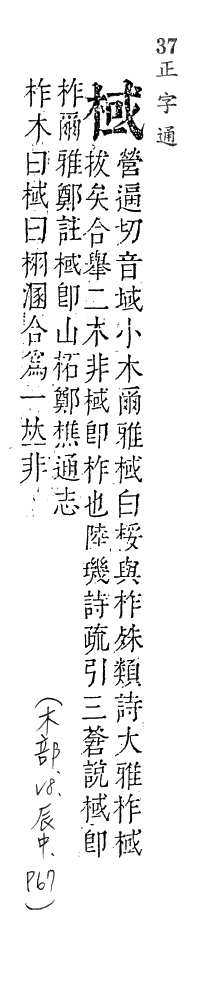 37正字通
棫
營逼切音域小木爾雅棫白桵與柞殊類詩大雅柞棫
拔矣合舉二木非棫卽柞也陸璣詩疏引三蒼說棫卽
柞爾雅鄭註棫卽山柘鄭樵通志
柞木曰棫曰栩溷合爲一𠀤非
(木部、V8、辰中、P67)